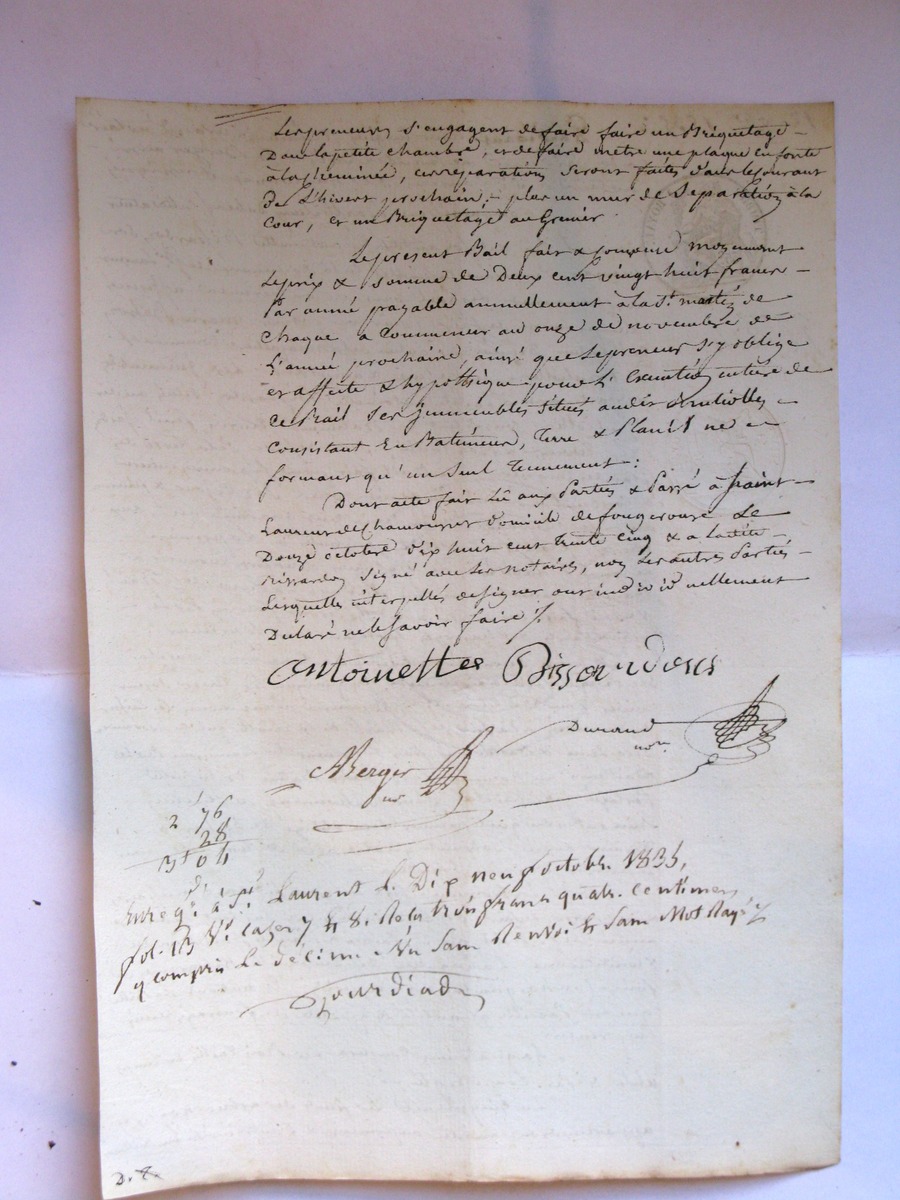 Les preneurs s'engagent de faire faire un Briquetage
Dans la petite chambre, et de faire metre une plaque en fonte
à la cheminée, ces réparations seront faites dans le courant
de L'hivert prochain; plus un mur de Séparation à la
Cour, et un Briquetage au Grenier.
Le present Bail fait & moyennant
Le prix & somme de Deux cent vingt huit francs
Par année payable annuellement à la St. martin de
chaque a commencer au onze de novembre de
L'année prochaine, ainsi que Le preneur s'y oblige
et affecte & hypothèque pour L' entière de
Ce Bail Ses immeubles Situés audit
Consistant En Batiments, Terre & ne
formant qu'un Seul Tennement:
Dont acte fait Lû aux Parties & Passé à Saint
Laurent de Chamousset domicile de fougerouse Le
Douze octobre dix huit cent trente cinq & a Ladite
Bissardon Signé avec Les notaires, non Les autres Parties
Lesquelles interpellés de signer ont individuellement
Declaré ne Le Savoir faire /.
Antoinette Bissardon
Durand
nore.
Berger
nre
2 76
28
3f 04
Enregé. à St. Laurent Le Dix neuf octobre 1835,
fol. 13 Vo. Cazes 7 & 8. Reçu trois francs quatre centimes
y compris Le décime Vu Sans Renvoi & Sans Mot Rayé
Gourdiad
D. F.